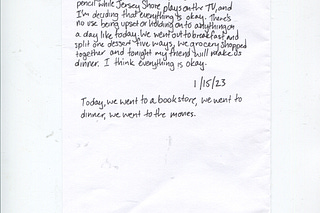 pencil while Jersey Shore plays on the TV, and
I'm deciding that everything is okay. There's
no use being upset or holding on to anything on
a day like today. We went out to breakfast and
split one dessert five ways, we grocery shopped
together and tonight my friend will make us
dinner. I think everything is okay.
1/15/23
Today, we went to a bookstore, we went to
dinner, we went to the movies.